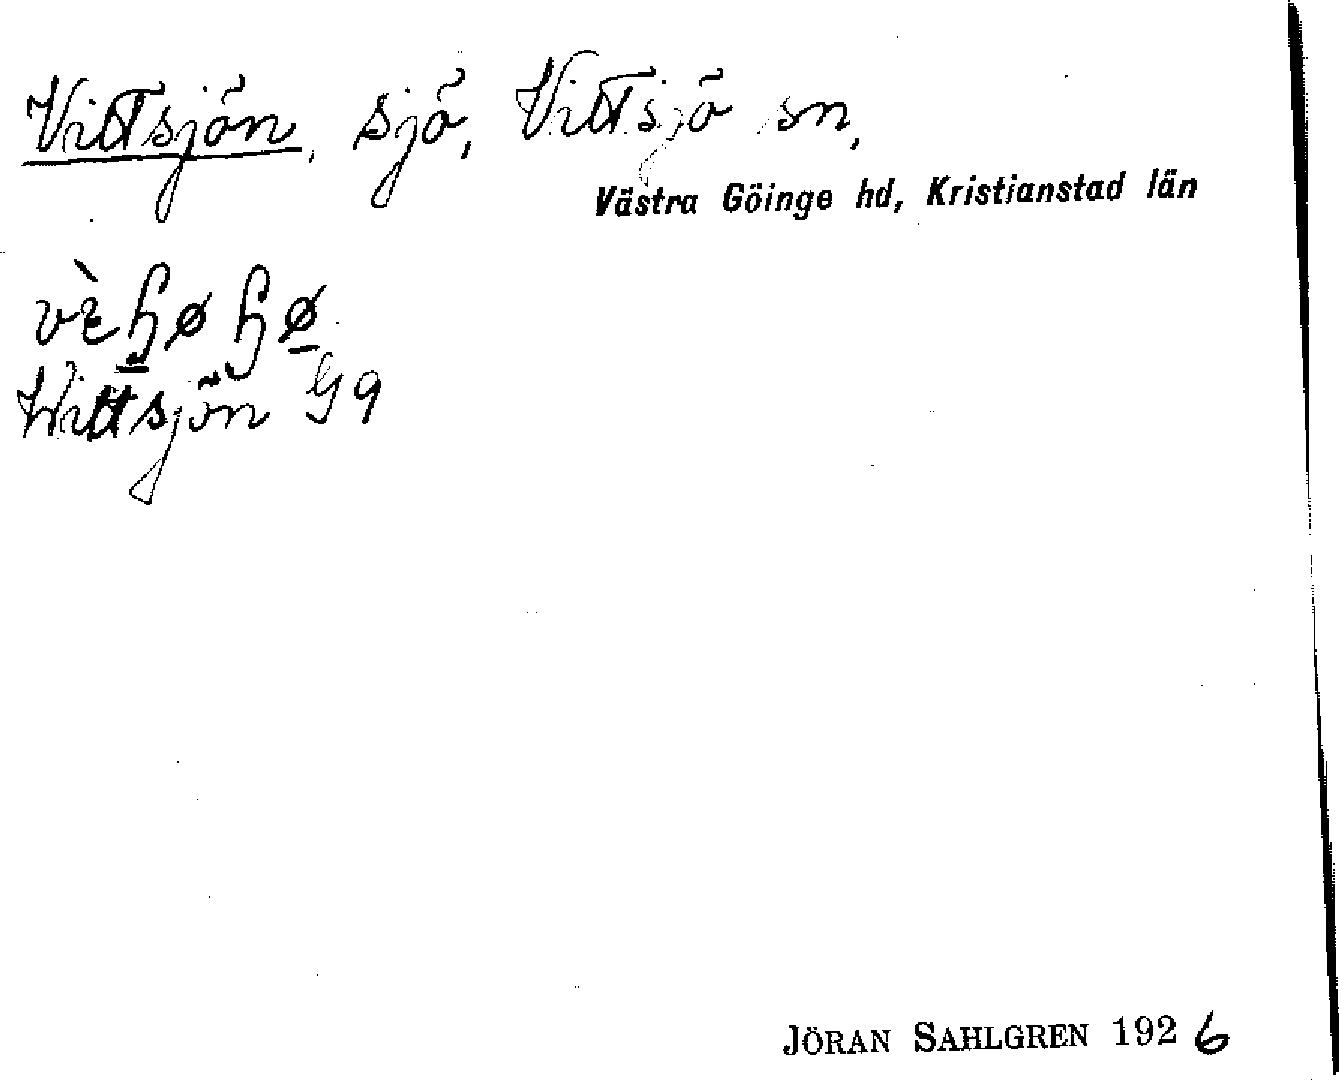 Vittsjön, sjö, Vittsjö sn,
Västra Göinge hd, Kristianstad län
Wittsjön G 9
JÖRAN SAHLGREN 1926